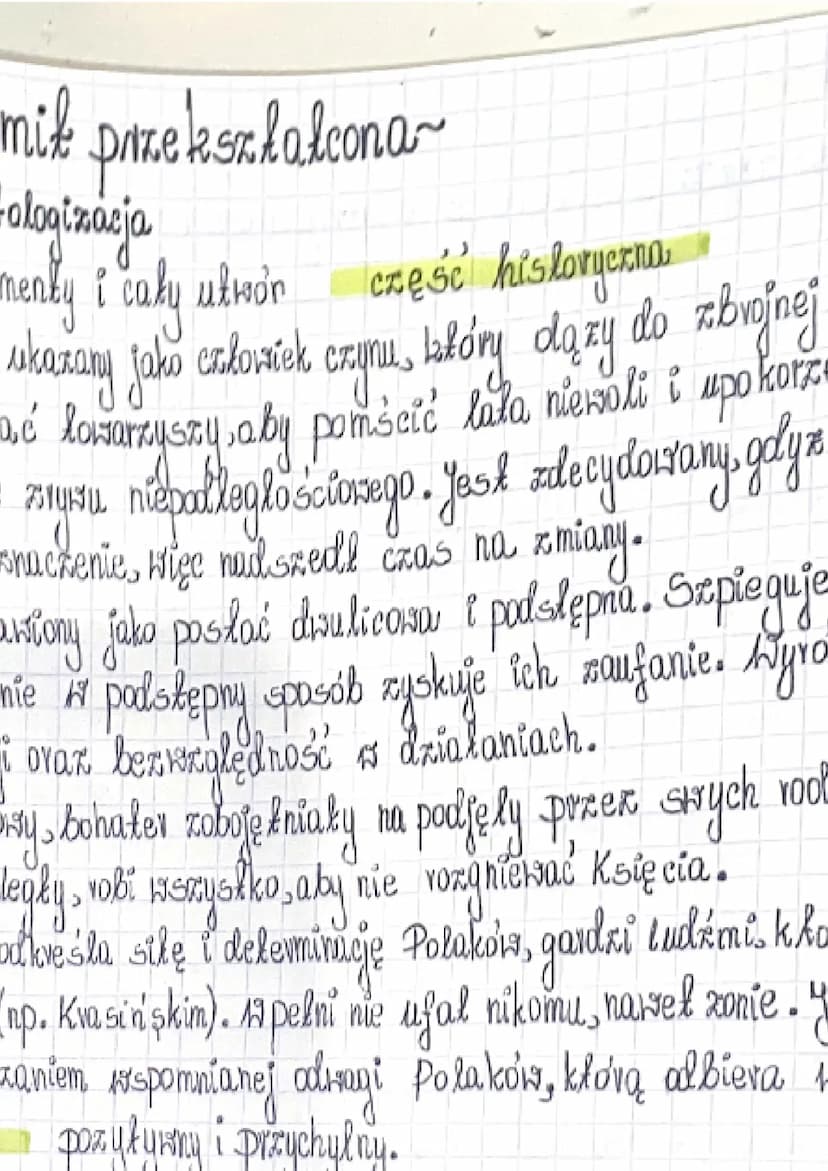 mit przekształcona~
ologizacja
menty i cały utwór część historyczna
ukazany jako człowiek czynu, który dąży do zbrojnej
ać towarzyszy, aby pomścić lata niewoli i upokorz
zrywu niepodległościowego. Jest zdecydowany, gdyż
znaczenie, więc nadszedł czas na zmiany.
awiony jako postać dwulicowa i podstępna. Szpieguje
nie w podstępny sposób zyskuje ich zaufanie. Wyro
i oraz bezwzględność w działaniach.
owy, bohater zobojętniały na podjęty przez swych rod
legły, robi wszystko, aby nie rozgniewać Księcia.
odkreśla siłę i determinację Polaków, gardzi ludźmi, któ
(np. Krasińskim). W pełni nie ufał nikomu, nawet żonie. J
zaniem wspomnianej odwagi Polaków, którą odbiera
pozytywny i przychylny.